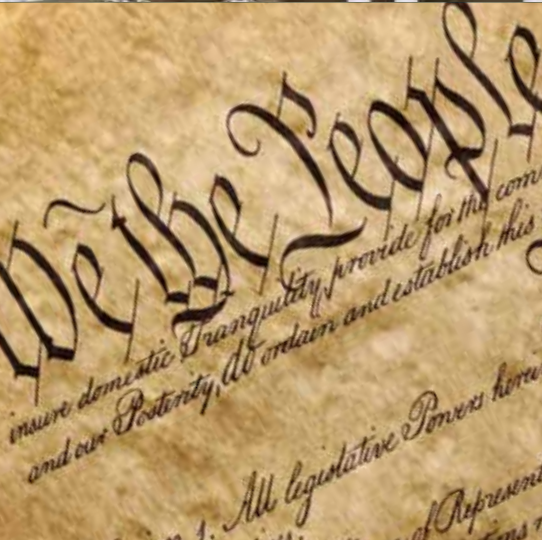 We the People
insure domestic Tranquility, provide for the com
and our Posterity, do ordain and establish this
All legislative Powers herei
of Represent